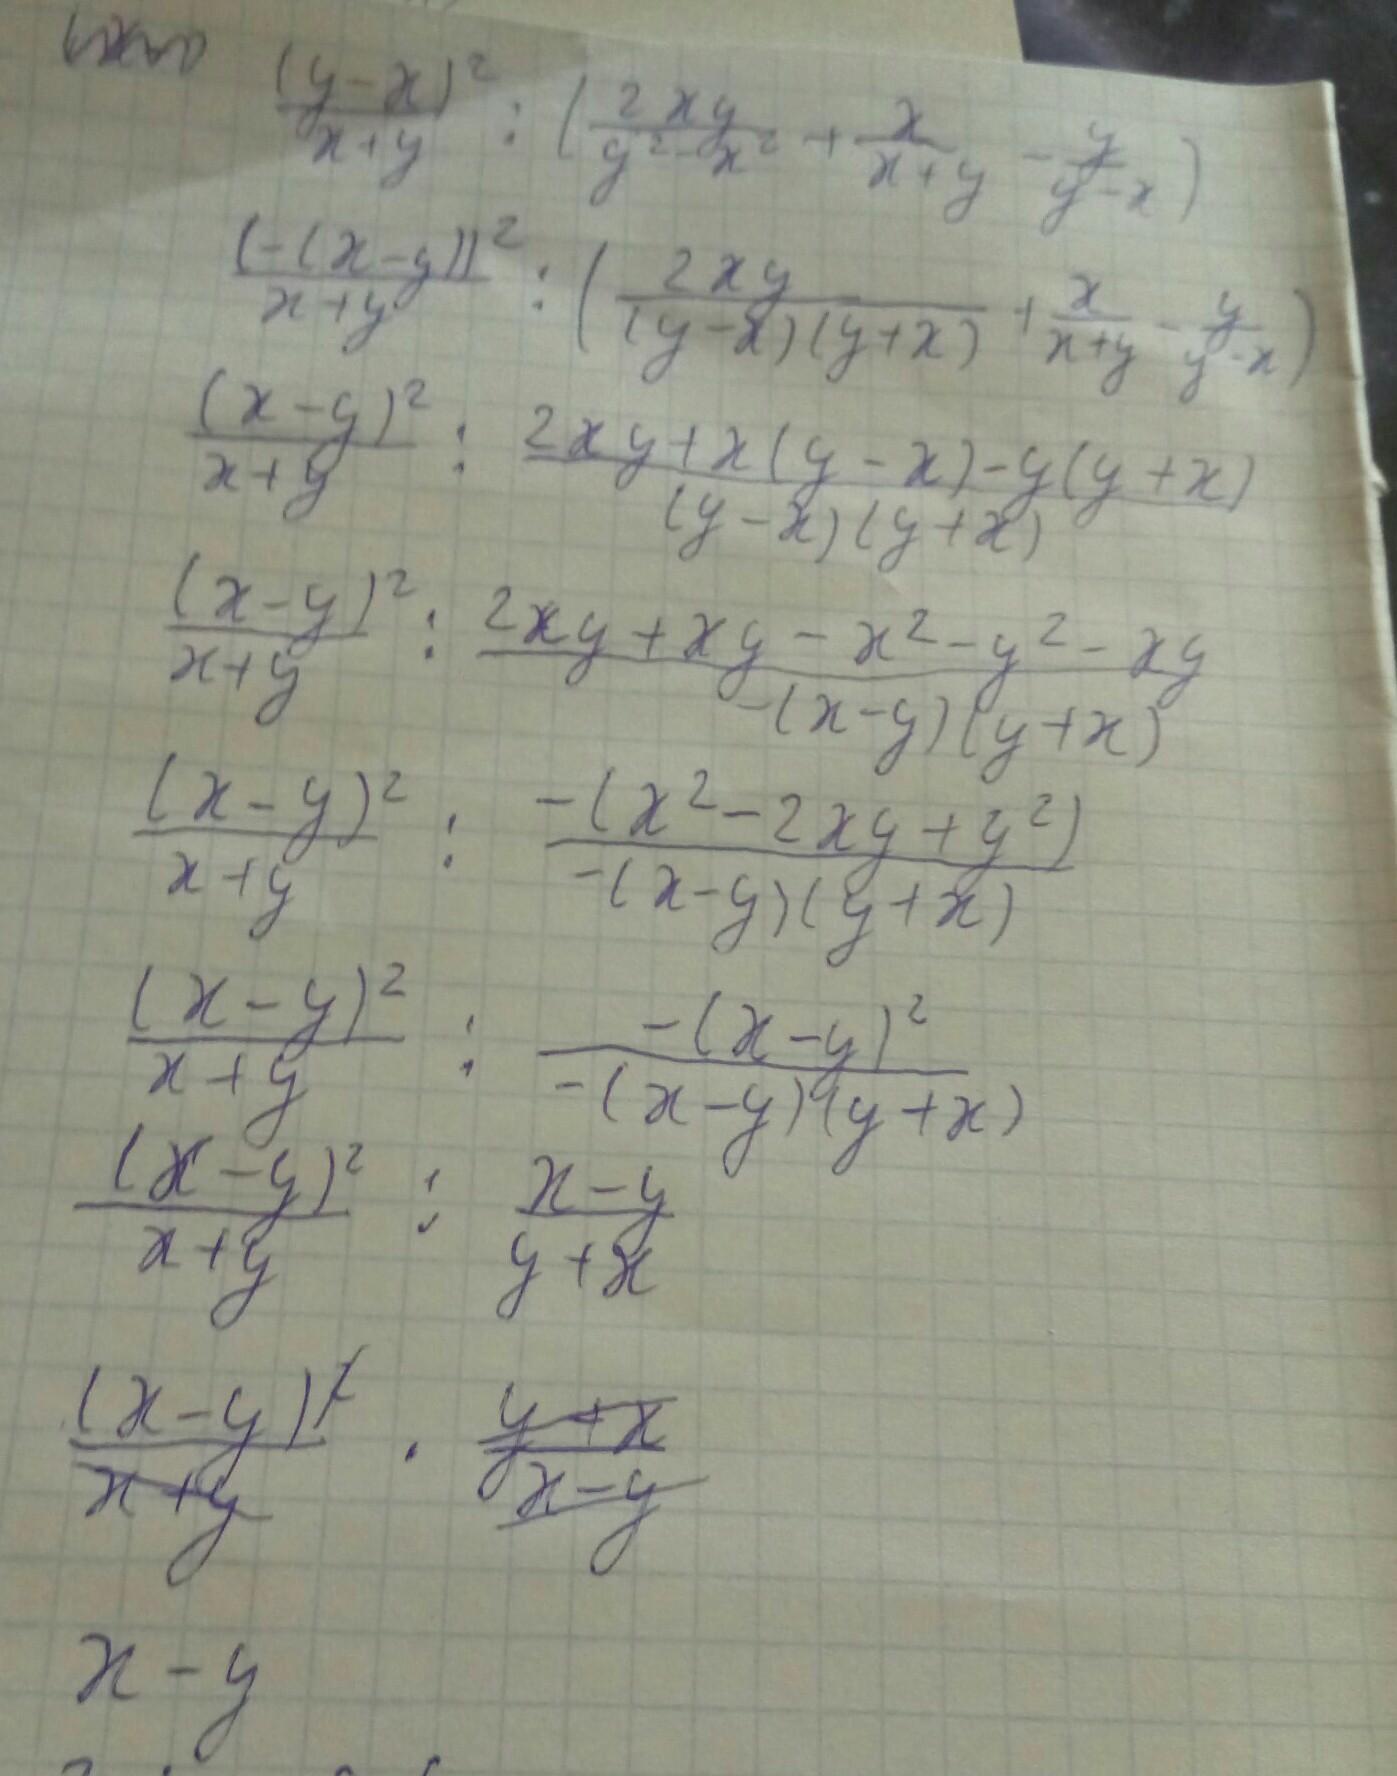 (y-x)²/(x+y) : (2xy/(y²-x²) + x/(x+y) - y/(y-x))
(-(x-y))²/(x+y) : (2xy/((y-x)(y+x)) + x/(x+y) - y/(y-x))
(x-y)²/(x+y) : (2xy+x(y-x)-y(y+x))/((y-x)(y+x))
(x-y)²/(x+y) : (2xy+xy-x²-y²-xy)/(-(x-y)(y+x))
(x-y)²/(x+y) : -(x²-2xy+y²)/(-(x-y)(y+x))
(x-y)²/(x+y) : -(x-y)²/(-(x-y)(y+x))
(x-y)²/(x+y) : (x-y)/(y+x)
(x-y)²/(x+y) · (y+x)/(x-y)
x-y